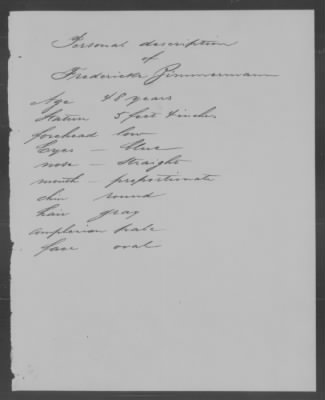 Personal description
of
Fredericka Zimmermann
Age 48 years
Stature 5 feet 4 inches
forehead low
Eyes – blue
nose – straight
mouth – proportionate
chin round
hair gray
complexion pale
face oval